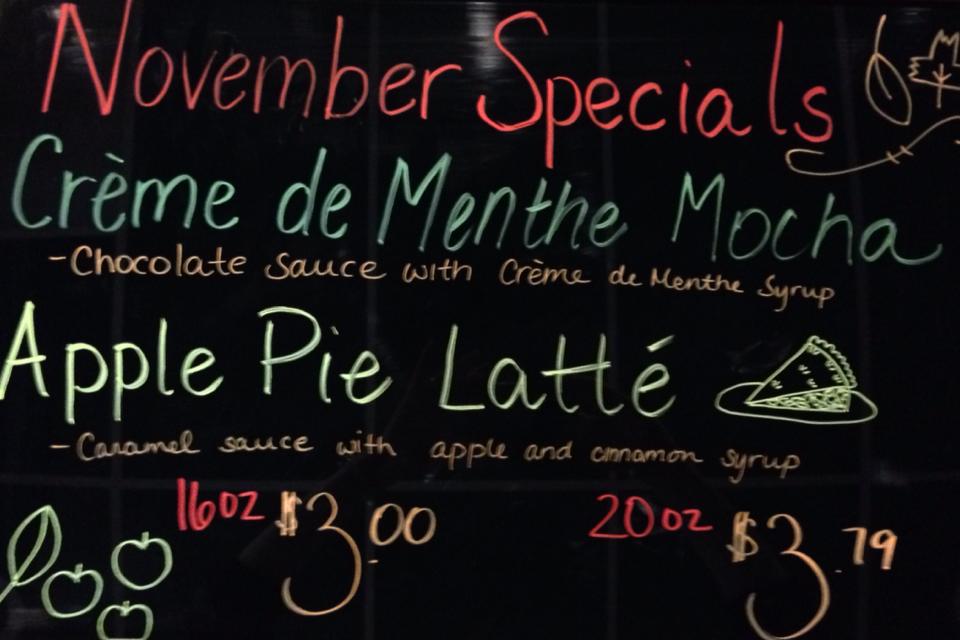 November Specials
Crème de Menthe Mocha
-Chocolate sauce with Crème de Menthe Syrup
Apple Pie Latté
-Caramel sauce with apple and cinnamon syrup
16oz $3.00 20oz $3.79